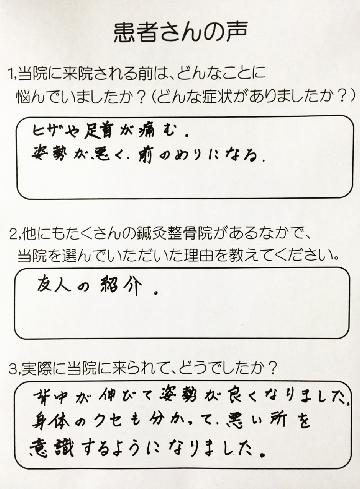 患者さんの声
1,当院に来院される前は、どんなことに
悩んでいましたか?(どんな症状がありましたか?)
ヒザや足首が痛む。
姿勢が悪く、前のめりになる。
2,他にもたくさんの鍼灸整骨院があるなかで、
当院を選んでいただいた理由を教えてください。
友人の紹介。
3,実際に当院に来られて、どうでしたか?
背中が伸びて姿勢が良くなりました。
身体のクセも分かって、悪い所を
意識するようになりました。